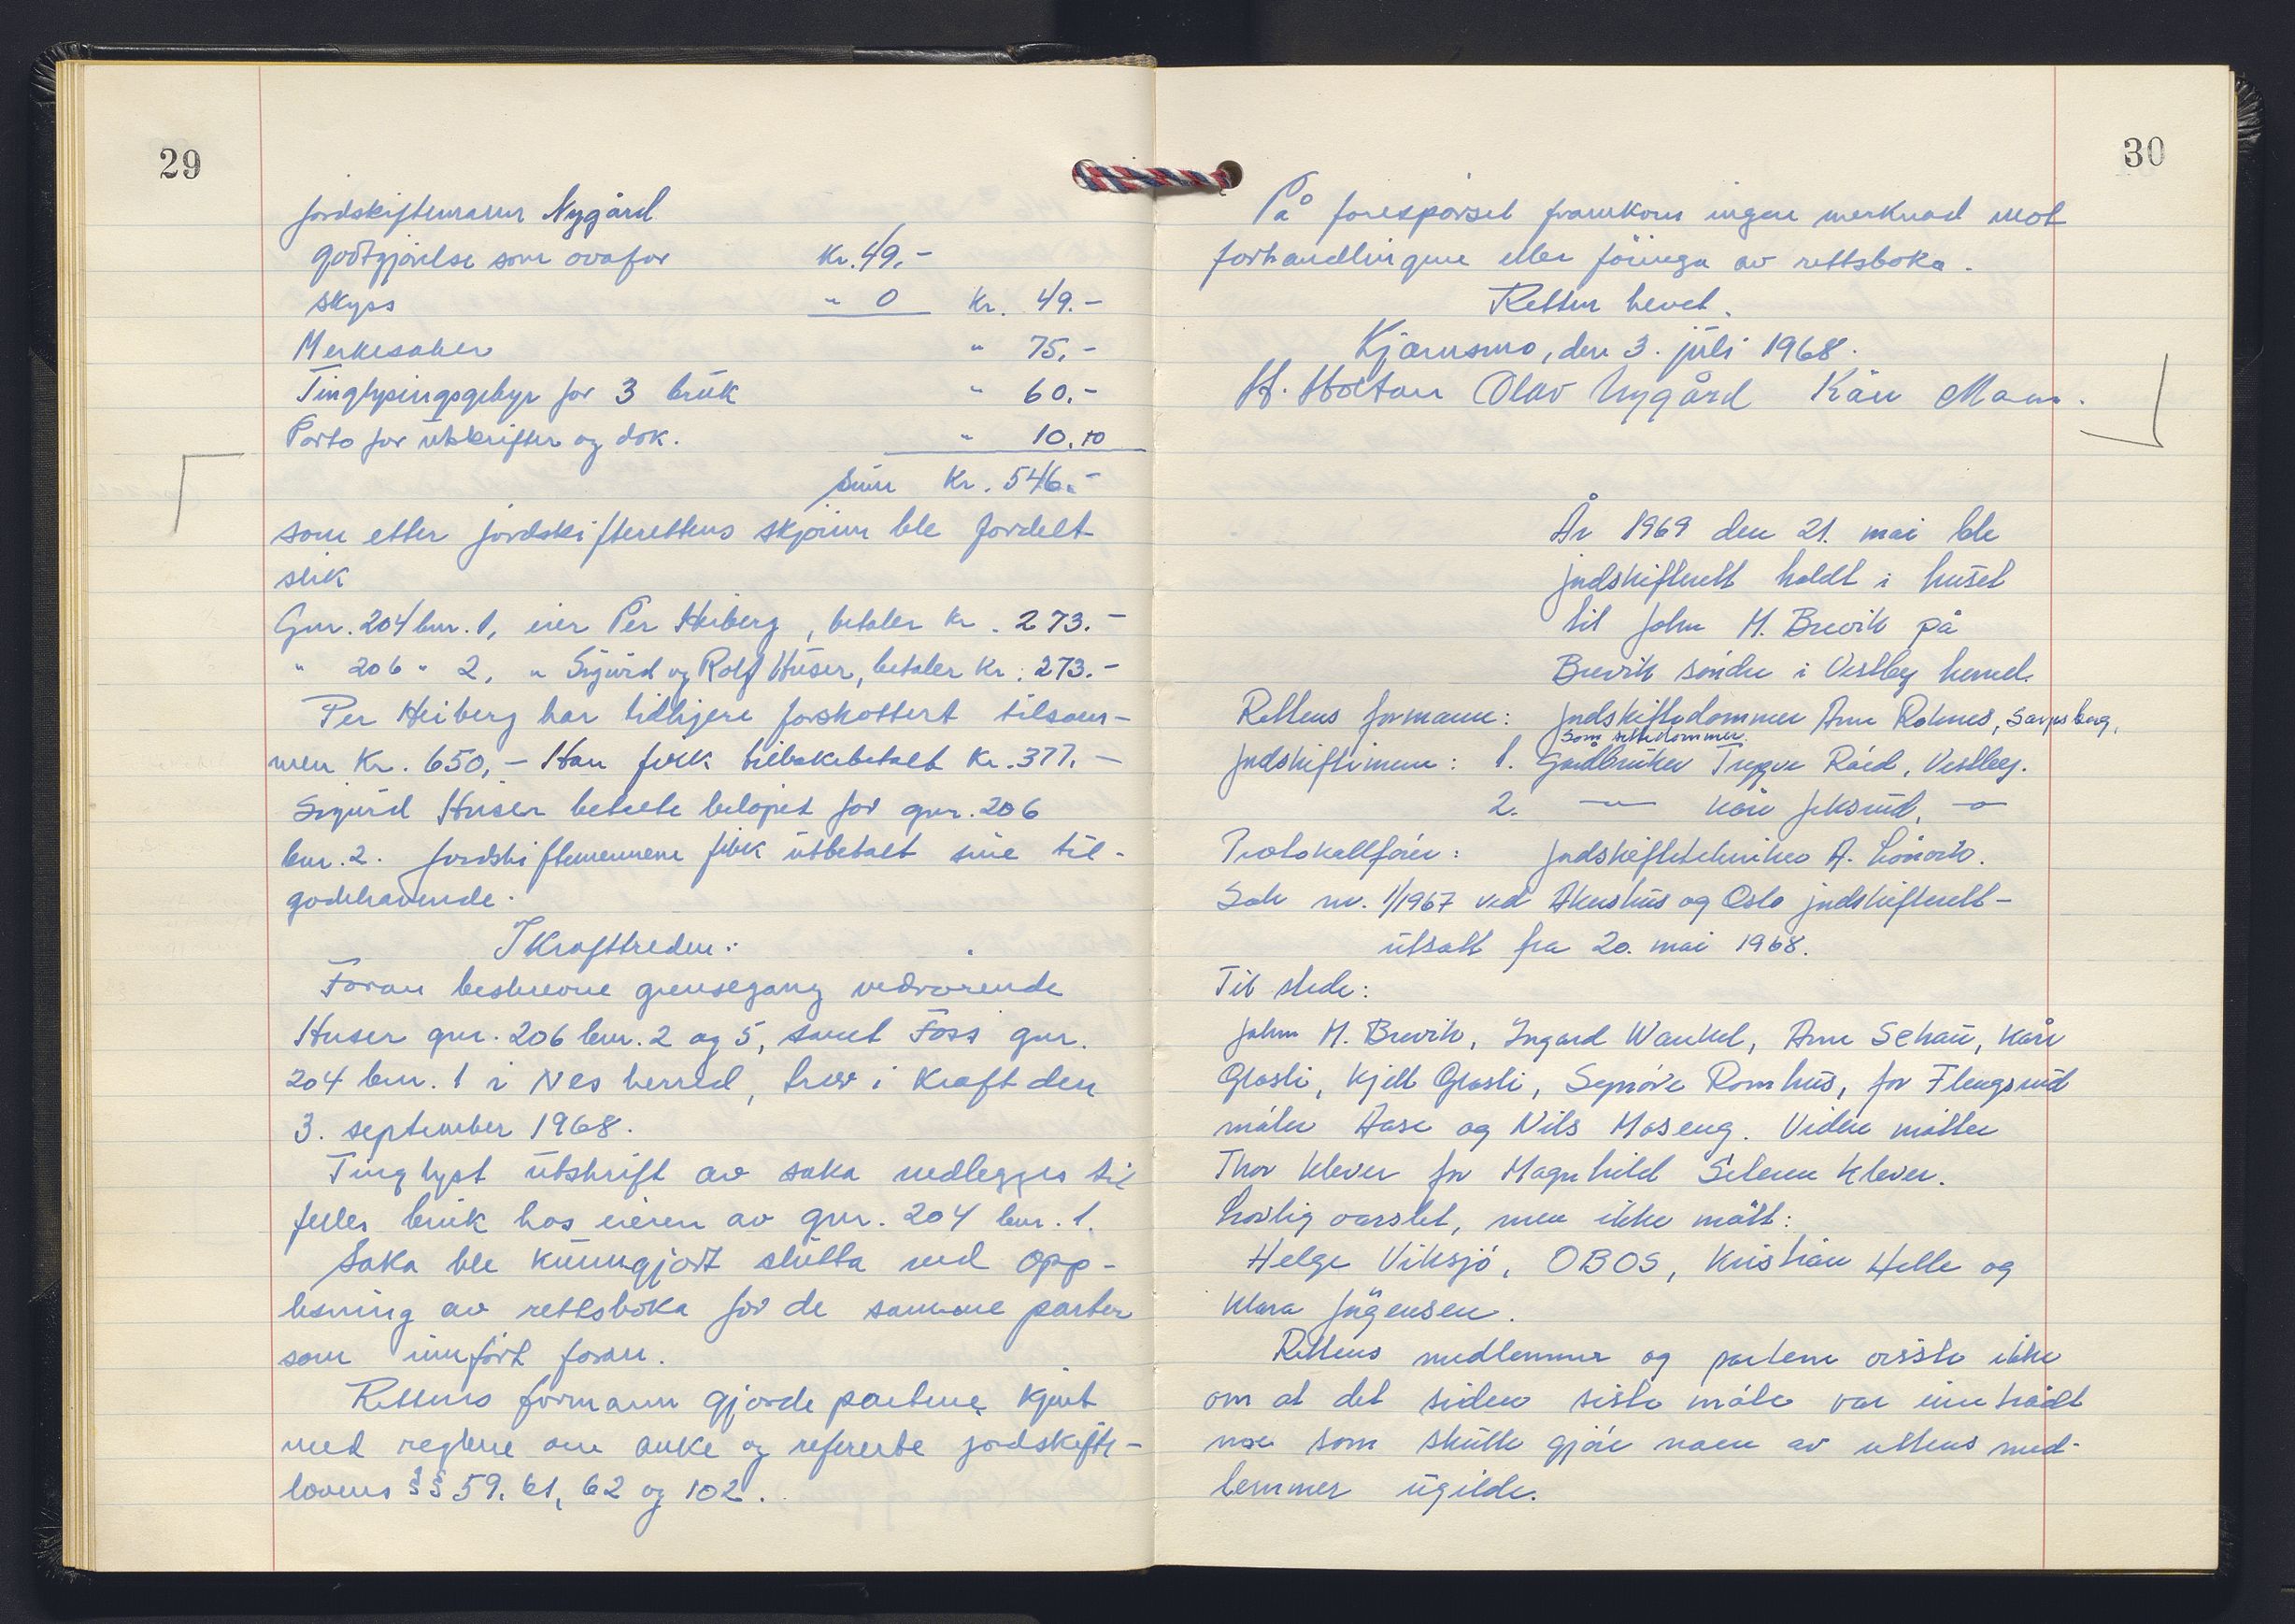 29
Jordskiftemann Nygård
godtgjørelse som ovafor Kr. 49,-
skyss " 0 Kr. 49.-
Merkesaker " 75,-
Tinglysingsgebyr for 3 bruk " 60.-
Porto for utskrifter og dok. " 10.10
Sum Kr. 546.-
som etter jordskifterettens skjønn ble fordelt
slik
Gnr. 204 bnr. 1, eier Per Heiberg, betaler kr. 273.-
" 206 " 2, " Sigurd og Rolf Huser, betaler Kr. 273.-
Per Heiberg har tidligere forskottert tilsam-
men Kr. 650,- Han fikk tilbakebetalt Kr. 377.-
Sigurd Huser betalte beløpet for gnr. 206
bnr. 2. Jordskiftemennene fikk utbetalt sine til-
godehavende.
Ikrafttreden:
Foran beskrevne grensegang vedrørende
Huser gnr. 206 bnr. 2 og 5, samt Foss gnr.
204 bnr. 1 i Nes herred, trer i kraft den
3. september 1968.
Tinglyst utskrift av saka nedlegges til
felles bruk hos eieren av gnr. 204 bnr. 1.
Saka ble kunngjort slutta ved opp-
lesning av rettsboka for de samme parter
som innført foran.
Rettens formann gjorde partene kjent
med reglene om anke og refererte jordskifte-
lovens §§ 59, 61, 62 og 102.
30
På forespørsel framkom ingen merknad mot
forhandlingene eller føringa av rettsboka.
Retten hevet.
Kjærnsmo, den 3. juli 1968.
H. Holtan Olav Nygård Kåre
År 1969 den 21. mai ble
jordskifterett holdt i huset
til John M. Brevik på
Brevik søndre i Vestby herred.
Rettens formann: Jordskiftedommer Arne Rolnes, Sarpsborg,
som settedommer.
Jordskiftemenn: 1. Gårdbruker Trygve Røed, Vestby.
2. —"— Kåre Jeksrud, —"—
Protokollfører: Jordskiftetekniker A. Lønvik.
Sak nr. 1/1967 ved Akershus og Oslo jordskifterett-
utsatt fra 20. mai 1968.
Til stede:
John M. Brevik, Ingard Wankel, Arne Schau, Kåre
Glosli, Kjell Glosli, Synøve Romhus, for Flengsrud
møter Aase og Nils Moseng. Videre møtte
Thor Klever for Magnhild Selene Klever.
Lovlig varslet, men ikke møtt:
Helge Viksjø, OBOS, Kristian Helle og
Klara Jørgensen.
Rettens medlemmer og partene visste ikke
om at det siden siste møte var inntrådt
noe som skulle gjøre noen av rettens med-
lemmer ugilde.